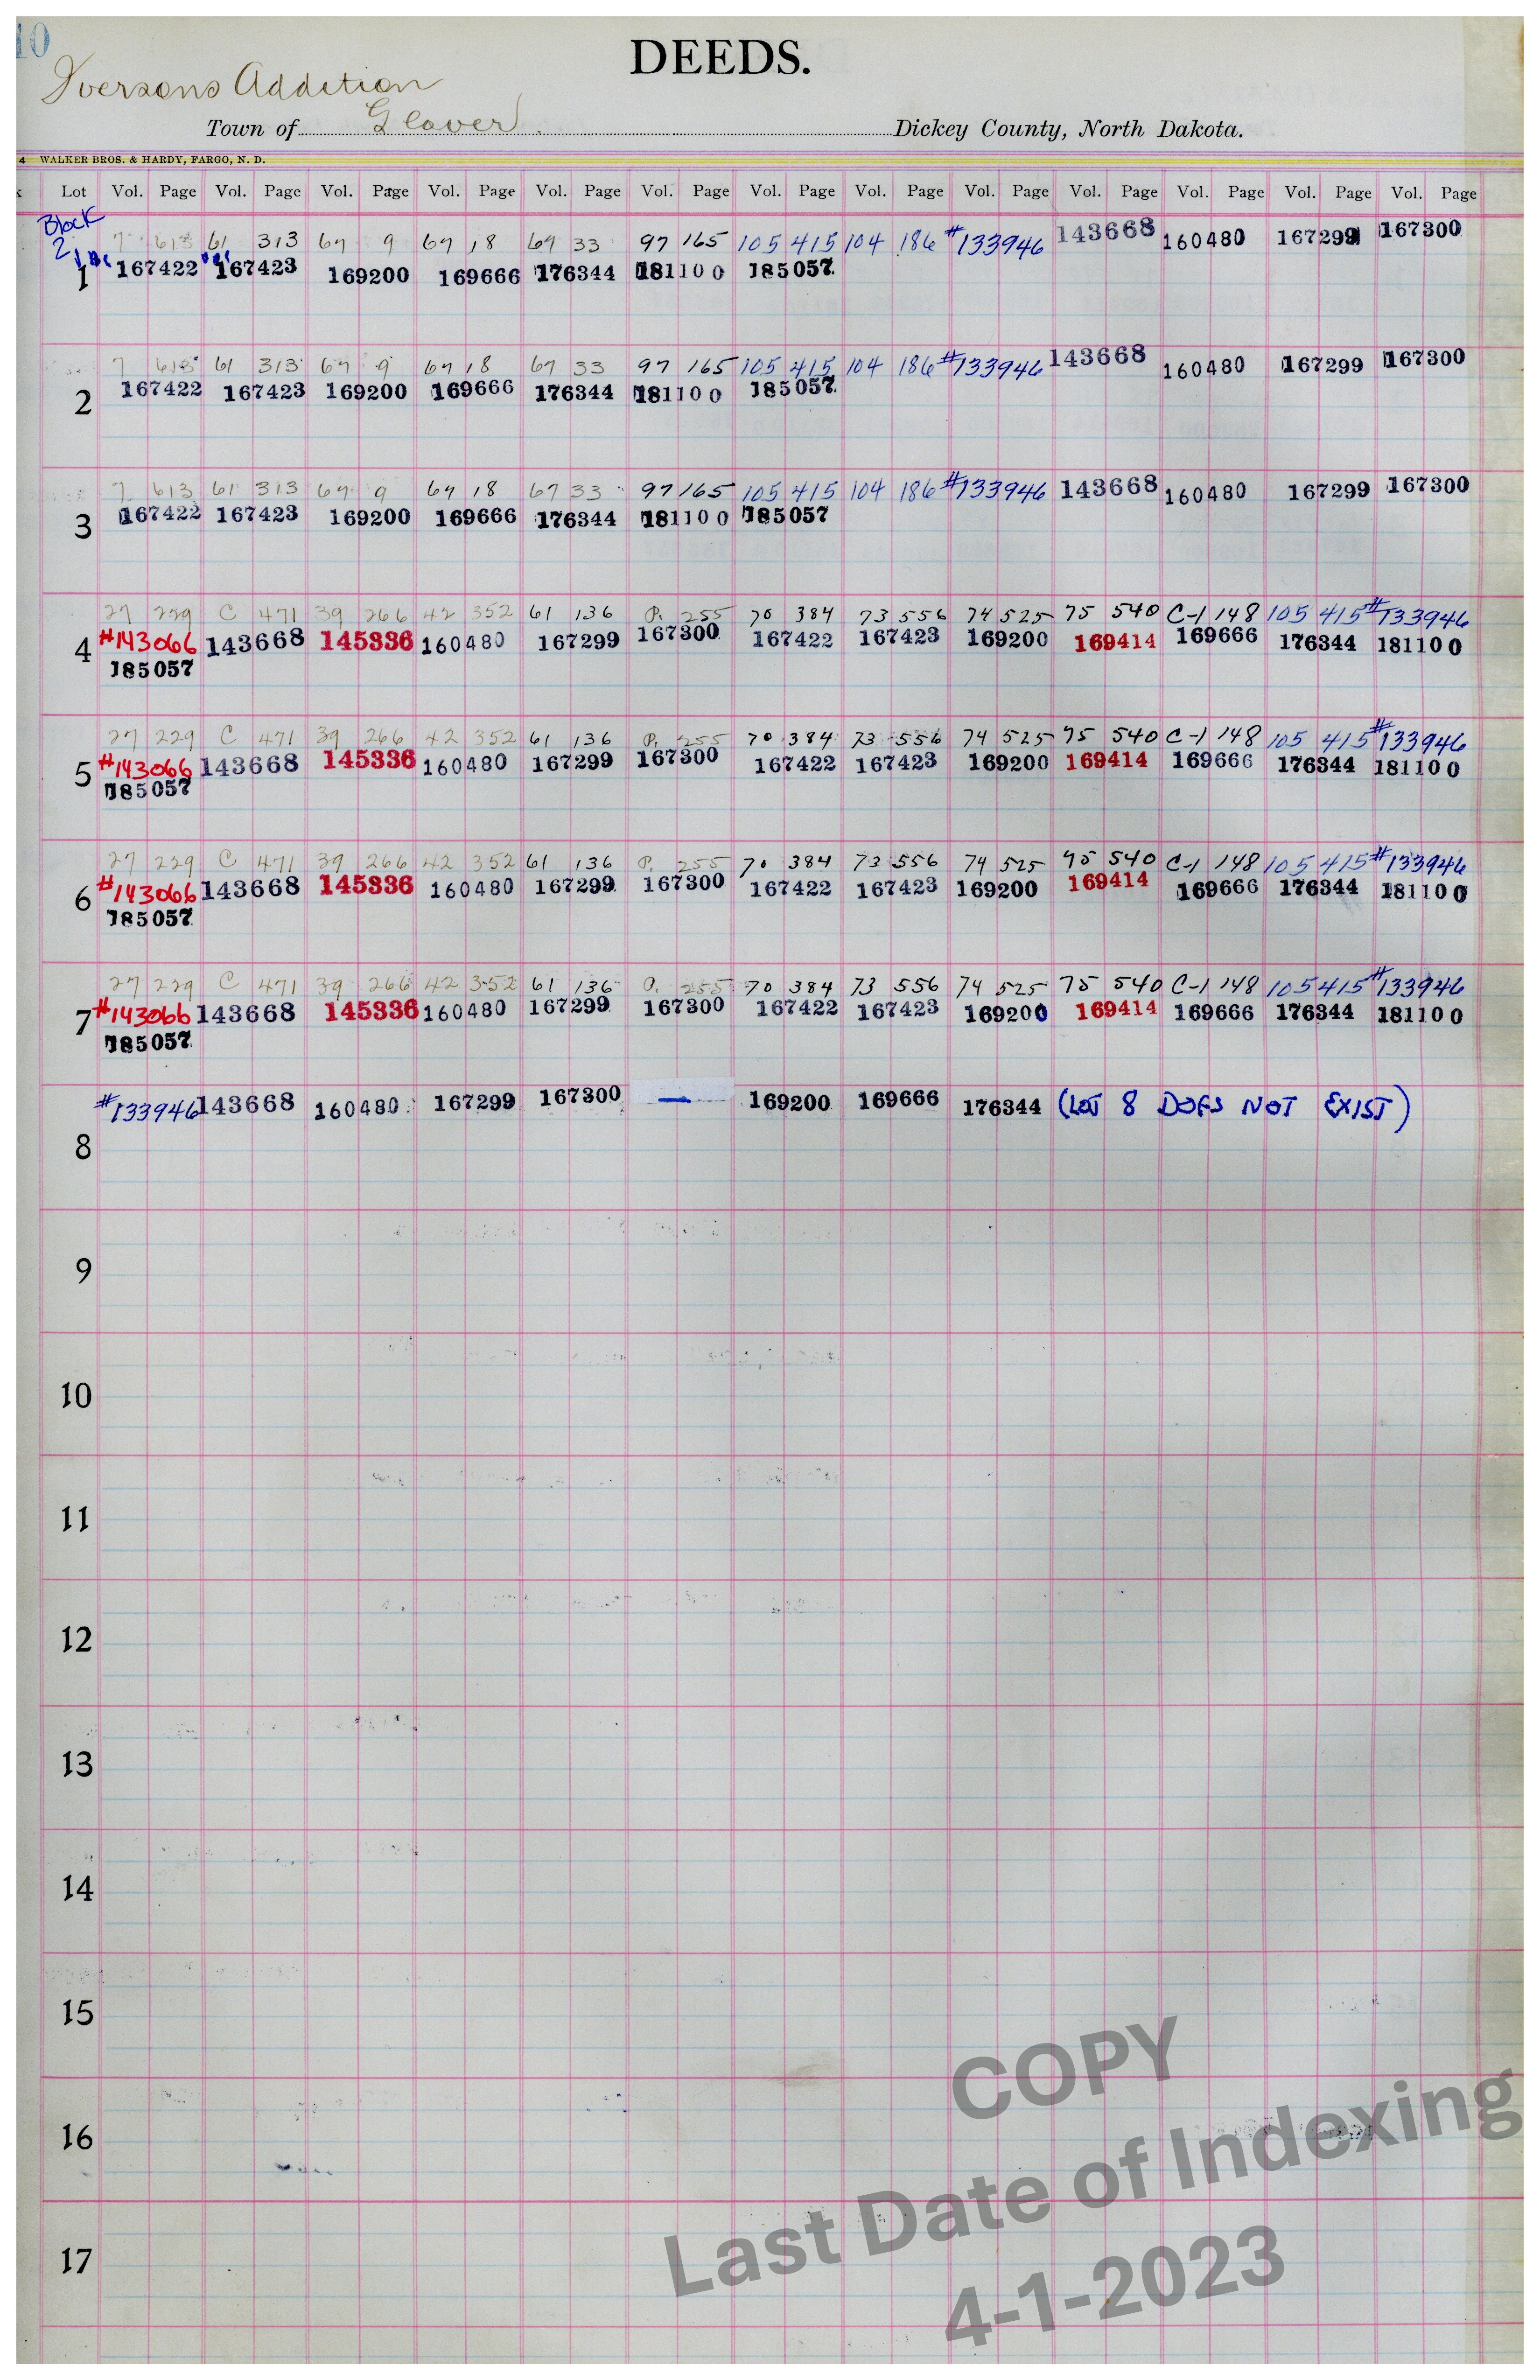 10
DEEDS.
Iversons Addition
Town of Glover Dickey County, North Dakota.
4 WALKER BROS. & HARDY, FARGO, N. D.
Lot Vol. Page Vol. Page Vol. Page Vol. Page Vol. Page Vol. Page Vol. Page Vol. Page Vol. Page Vol. Page Vol. Page Vol. Page Vol. Page
Block
2
7 613 61 313 67 9 67 18 67 33 97 165 105 415 104 186 #133946 143668 160480 167299 167300
1 167422 167423 169200 169666 176344 181100 185057
7 613 61 313 67 9 67 18 67 33 97 165 105 415 104 186 #133946 143668 160480 167299 167300
2 167422 167423 169200 169666 176344 181100 185057
7 613 61 313 67 9 67 18 67 33 97 165 105 415 104 186 #133946 143668 160480 167299 167300
3 167422 167423 169200 169666 176344 181100 185057
27 229 C 471 39 266 42 352 61 136 P. 255 70 384 73 556 74 525 75 540 C-1 148 105 415 #133946
4 #143066 143668 145336 160480 167299 167300 167422 167423 169200 169414 169666 176344 181100
185057
27 229 C 471 39 266 42 352 61 136 P. 255 70 384 73 556 74 525 75 540 C-1 148 105 415 #133946
5 #143066 143668 145336 160480 167299 167300 167422 167423 169200 169414 169666 176344 181100
185057
27 229 C 471 39 266 42 352 61 136 P. 255 70 384 73 556 74 525 75 540 C-1 148 105 415 #133946
6 #143066 143668 145336 160480 167299 167300 167422 167423 169200 169414 169666 176344 181100
185057
27 229 C 471 39 266 42 352 61 136 255 70 384 73 556 74 525 75 540 C-1 148 105 415 #133946
7 #143066 143668 145336 160480 167299 167300 167422 167423 169200 169414 169666 176344 181100
185057
#133946 143668 160480 167299 167300 — 169200 169666 176344 (LOT 8 DOES NOT EXIST)
8
9
10
11
12
13
14
15
16
17
COPY
Last Date of Indexing
4-1-2023